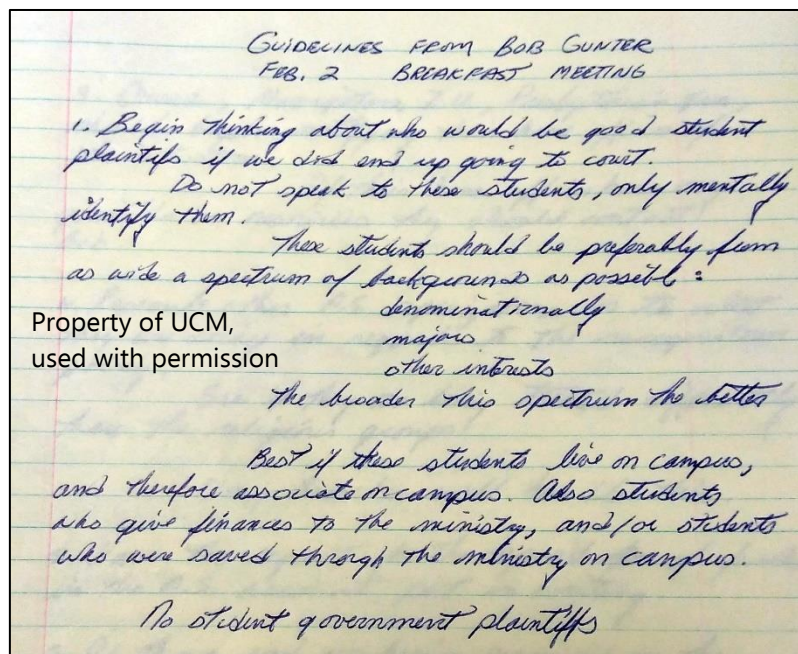 GUIDELINES FROM BOB GUNTER
FEB. 2 BREAKFAST MEETING
1. Begin thinking about who would be good student
plaintifs if we did end up going to court.
Do not speak to these students, only mentally
identify them.
These students should be preferably from
as wide a spectrum of backgrounds as possible:
denominationally
majors
other interests
The broader this spectrum the better
Property of UCM,
used with permission
Best if these students live on campus,
and therefore associate on campus. Also students
who give finances to the ministry, and/or students
who were saved through the ministry on campus.
No student government plaintiffs